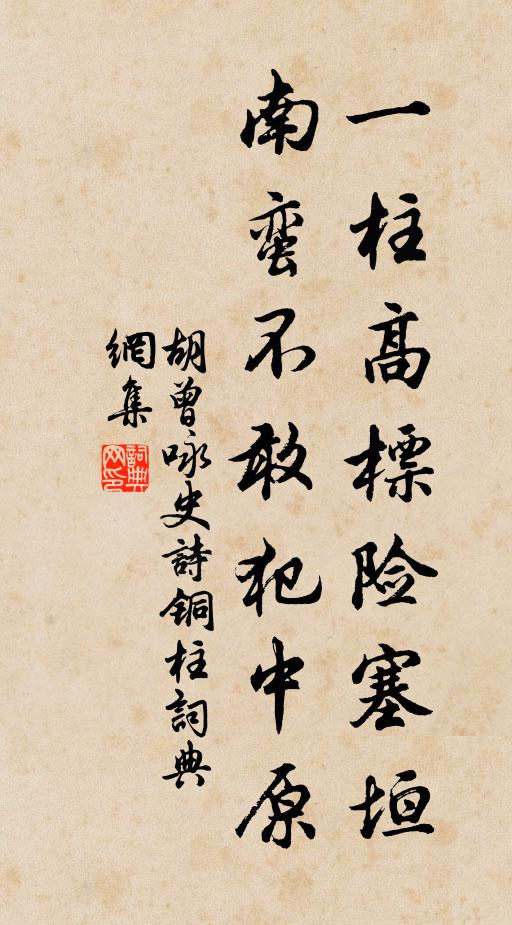 一柱高標险塞垣
南蛮不敢犯中原
胡曾咏史詩铜柱詞典
網集
詞典网印